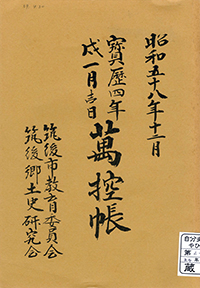 昭和五十八年十二月
寳歴四年
戌一月吉日
萬控帳
筑後市教育委員会
筑後郷土史研究会
蔵